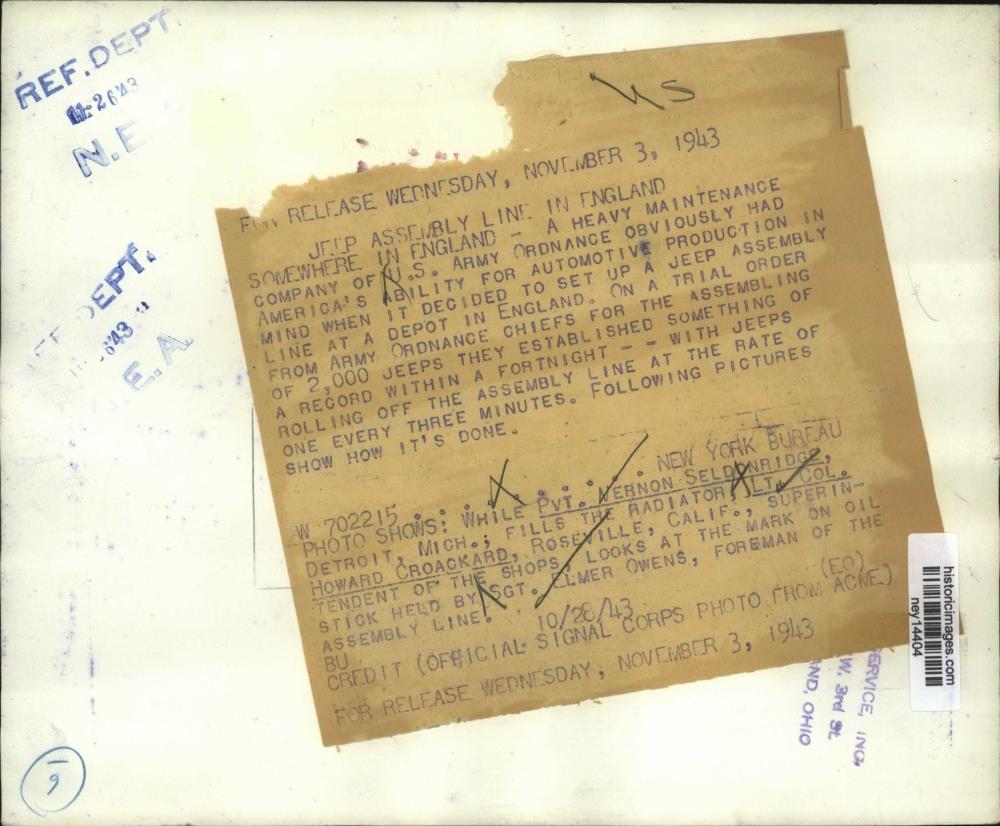 REF. DEPT.
11-26'43
N.E.
DEPT.
'43
E.A.
US
FOR RELEASE WEDNESDAY, NOVEMBER 3, 1943
JEEP ASSEMBLY LINE IN ENGLAND
SOMEWHERE IN ENGLAND - A HEAVY MAINTENANCE
COMPANY OF U.S. ARMY ORDNANCE OBVIOUSLY HAD
AMERICA'S ABILITY FOR AUTOMOTIVE PRODUCTION IN
MIND WHEN IT DECIDED TO SET UP A JEEP ASSEMBLY
LINE AT A DEPOT IN ENGLAND. ON A TRIAL ORDER
FROM ARMY ORDNANCE CHIEFS FOR THE ASSEMBLING
OF 2,000 JEEPS THEY ESTABLISHED SOMETHING OF
A RECORD WITHIN A FORTNIGHT -- WITH JEEPS
ROLLING OFF THE ASSEMBLY LINE AT THE RATE OF
ONE EVERY THREE MINUTES. FOLLOWING PICTURES
SHOW HOW IT'S DONE.
W 702215 . . . . . . NEW YORK BUREAU
PHOTO SHOWS: WHILE PVT. VERNON SELDENRIDGE,
DETROIT, MICH., FILLS THE RADIATOR LT. COL.
HOWARD CROACKARD, ROSEVILLE, CALIF., SUPERIN-
TENDENT OF THE SHOPS, LOOKS AT THE MARK ON OIL
STICK HELD BY SGT. ELMER OWENS, FOREMAN OF THE
ASSEMBLY LINE.
BU 10/28/43 (EO)
CREDIT (OFFICIAL SIGNAL CORPS PHOTO FROM ACME)
FOR RELEASE WEDNESDAY, NOVEMBER 3, 1943
SERVICE, INC.
W. 3rd St.
AND, OHIO
historicimages.com
ney14404